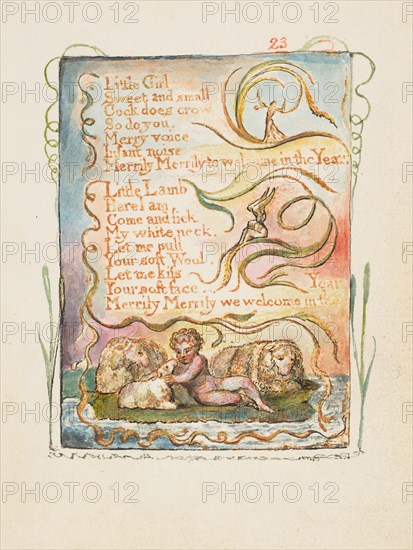 23
Little Girl
Sweet and small
Cock does crow
So do you.
Merry voice
Infant noise
Merrily Merrily to welcome in the Year.
Little Lamb
Here I am,
Come and lick
My white neck.
Let me pull
Your soft Wool.
Let me kiss
Your soft face.
Merrily Merrily we welcome in the
Year
PHOTO12